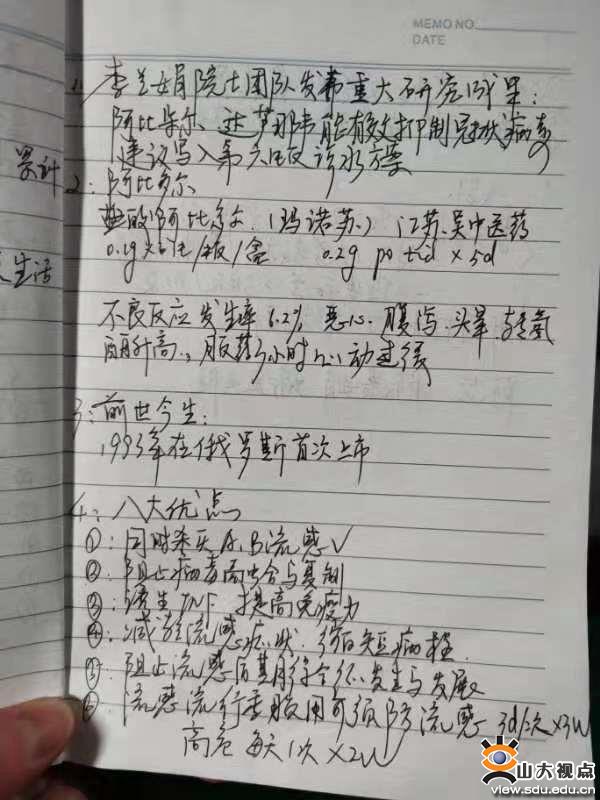 MEMO NO.
DATE
1. 李兰娟院士团队发布重大研究成果:
阿比朵尔、达芦那韦能有效抑制冠状病毒
建议写入第六版诊疗方案
累计
2: 阿比多尔
盐酸阿比多尔 (玛诺苏) 江苏吴中医药
0.1g /板/盒 0.2g po tid × 5d
生活
不良反应发生率 6.2% 恶心、腹泻、头晕、转氨
酶升高、服药 小时 心动过缓
3: 前世今生:
1993年在俄罗斯首次上市
4: 八大优点
①: 同时杀灭A、B流感V
②: 阻止病毒 合与复制
③: 诱生INF 提高免疫力
④: 减轻流感症状、缩短病程
⑤: 阻止流感后 综合征发生与发展
⑥: 流感流行季服用可预防流感 3d/次×3W
高危 每天1次 ×2W
山大视点
view.sdu.edu.cn